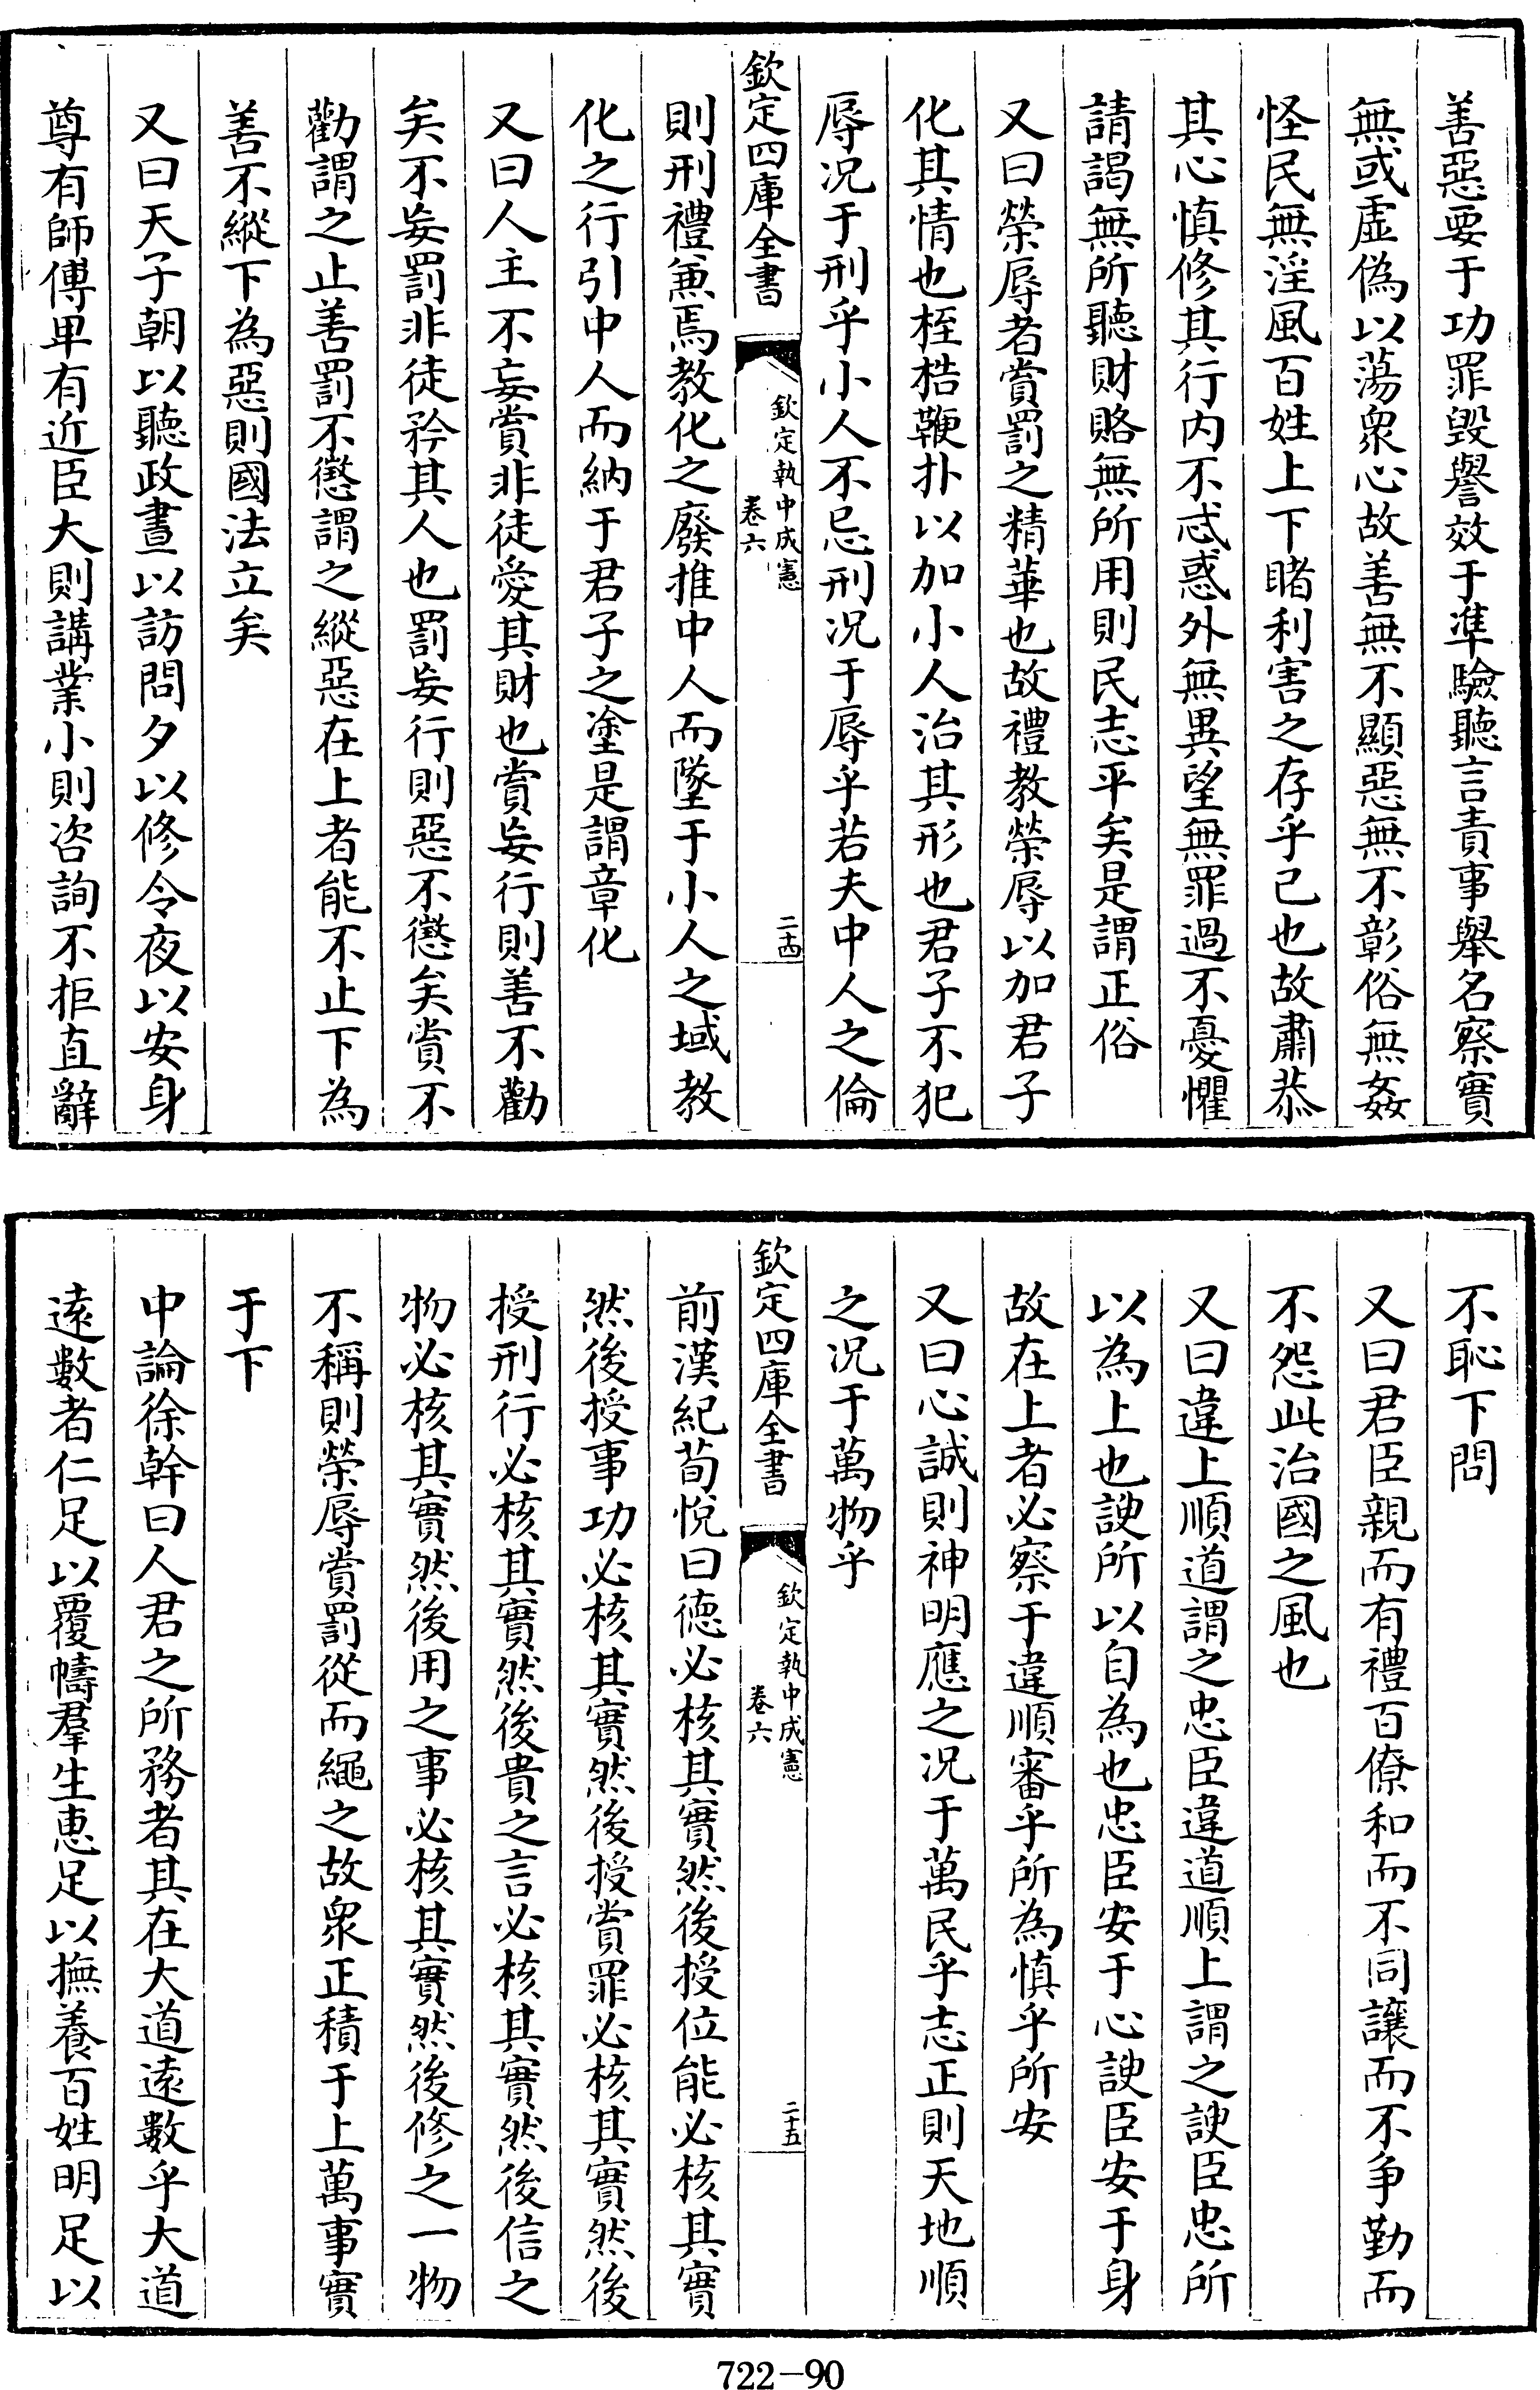 善惡要于功罪毁譽效于凖驗聽言責事舉名察實
無或虛偽以蕩衆心故善無不顯惡無不彰俗無姦
怪民無淫風百姓上下睹利害之存乎己也故肅恭
其心慎修其行内不忒惑外無異望無罪過不憂懼
請謁無所聽財賂無所用則民志平矣是謂正俗
又曰榮辱者賞罰之精華也故禮教榮辱以加君子
化其情也桎梏鞭扑以加小人治其形也君子不犯
辱况于刑乎小人不忌刑况于辱乎若夫中人之倫
欽定四庫全書
欽定執中成憲
卷六
二十四
則刑禮兼焉教化之廢推中人而墜于小人之域教
化之行引中人而納于君子之塗是謂章化
又曰人主不妄賞非徒愛其財也賞妄行則善不勸
矣不妄罰非徒矜其人也罰妄行則惡不懲矣賞不
勸謂之止善罰不懲謂之縱惡在上者能不止下為
善不縱下為惡則國法立矣
又曰天子朝以聽政晝以訪問夕以修令夜以安身
尊有師傅卑有近臣大則講業小則咨詢不拒直辭
不恥下問
又曰君臣親而有禮百僚和而不同讓而不争勤而
不怨此治國之風也
又曰違上順道謂之忠臣違道順上謂之諛臣忠所
以為上也諛所以自為也忠臣安于心諛臣安于身
故在上者必察于違順審乎所為慎乎所安
又曰心誠則神明應之况于萬民乎志正則天地順
之况于萬物乎
欽定四庫全書
欽定執中成憲
卷六
二十五
前漢紀荀悅曰德必核其實然後授位能必核其實
然後授事功必核其實然後授賞罪必核其實然後
授刑行必核其實然後貴之言必核其實然後信之
物必核其實然後用之事必核其實然後修之一物
不稱則榮辱賞罰從而繩之故衆正積于上萬事實
于下
中論徐幹曰人君之所務者其在大道遠數乎大道
遠數者仁足以覆幬羣生惠足以撫養百姓明足以
722-90